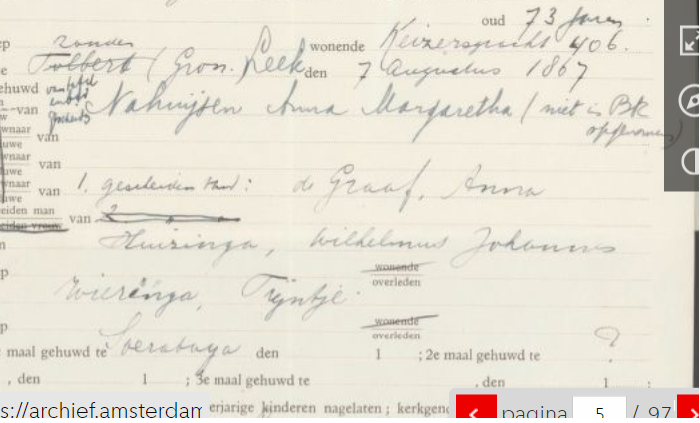 oud 73 Jaren.
ep zonder wonende Keizersgracht 406.
e Tolbert (Gron. Leek den 7 Augustus 1867
ehuwd
van Nahuijsen Anna Margaretha (niet in BR
w opgenomen)
wnaar van
uwe
wnaar van
uwe
wnaar van 1. gescheiden van: de Graaf, Anna
uwe
eiden man
eiden vrouw van 2.
n Huizinga, Wilhelmus Johannes
wonende
p overleden
Wierenga, Trijntje
wonende
p overleden
maal gehuwd te Soerabaya den 1 ; 2e maal gehuwd te ?
, den 1 ; 3e maal gehuwd te , den 1 ;
s://archief.amsterdam erjarige kinderen nagelaten ; kerkgen pagina 5 / 97